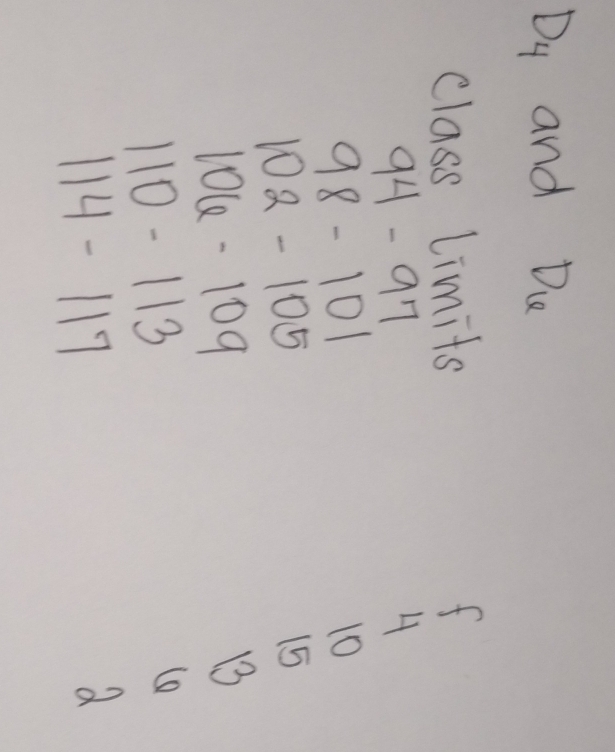 D4 and D6
class limits f
94 - 97 4
98 - 101 10
102 - 105 15
106 - 109 13
110 - 113 6
114 - 117 2